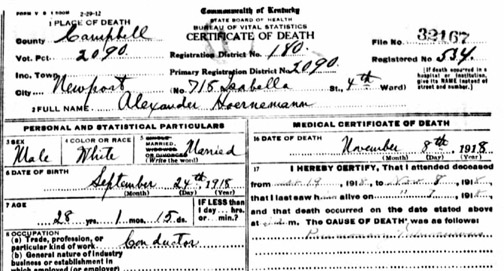 FORM V S 1 2-29-12
Commonwealth of Kentucky
STATE BOARD OF HEALTH
BUREAU OF VITAL STATISTICS
CERTIFICATE OF DEATH
1 PLACE OF DEATH
County Campbell
Vot. Pct. 2090.
Registration District No. 180.
File No. 32167
Inc. Town
Primary Registration District No. 2090.
Registered No. 534.
City Newport No 715 Isabella St., 4th Ward)
(If death occurred in a hospital or institution, give its NAME instead of street and number.)
2 FULL NAME Alexander Hoernemann
PERSONAL AND STATISTICAL PARTICULARS
MEDICAL CERTIFICATE OF DEATH
3 SEX Male
4 COLOR OR RACE White
5 SINGLE MARRIED, WIDOWED OR DIVORCED (Write the word) Married
16 DATE OF DEATH
November 8th, 1918
(Month) (Day) (Year)
6 DATE OF BIRTH
September 24th, 1918
(Month) (Day) (Year)
17 I HEREBY CERTIFY, That I attended deceased
from 191 to 191
that I last saw h alive on 191
7 AGE
28 yrs. 1 mos. 15 ds.
IF LESS than 1 day, hrs. or min.?
and that death occurred on the date stated above
at m. The CAUSE OF DEATH* was as follows:
8 OCCUPATION
(a) Trade, profession, or particular kind of work Conductor
(b) General nature of industry
business or establishment in
which employed (or employer)